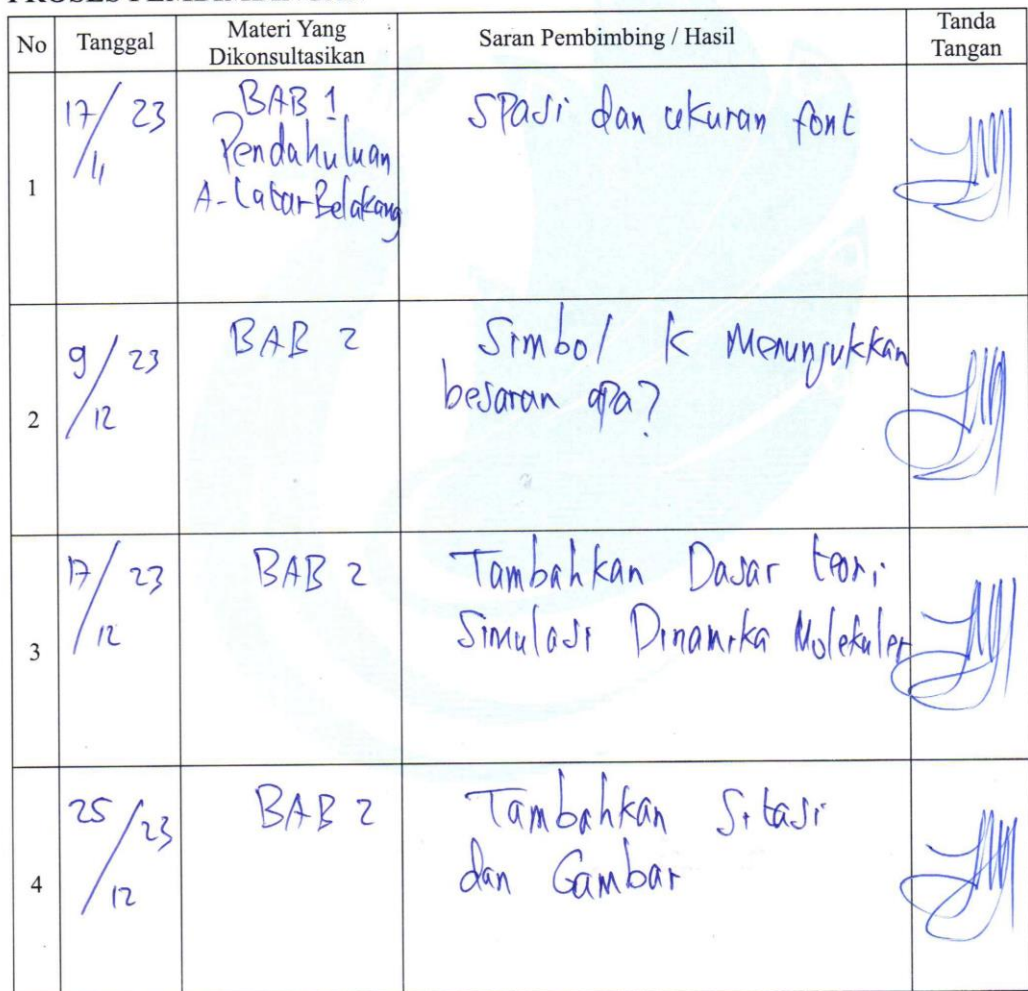 No
Tanggal
Materi Yang
Dikonsultasikan
Saran Pembimbing / Hasil
Tanda
Tangan
1
17/ 23
/11
BAB 1
Pendahuluan
A- Latar Belakang
Spasi dan ukuran font
2
9/ 23
/12
BAB 2
Simbol K Menunjukkan
besaran apa?
3
17/ 23
/12
BAB 2
Tambahkan Dasar teori
Simulasi Dinamika Molekuler
4
25/23
/12
BAB 2
Tambahkan Sitasi
dan Gambar